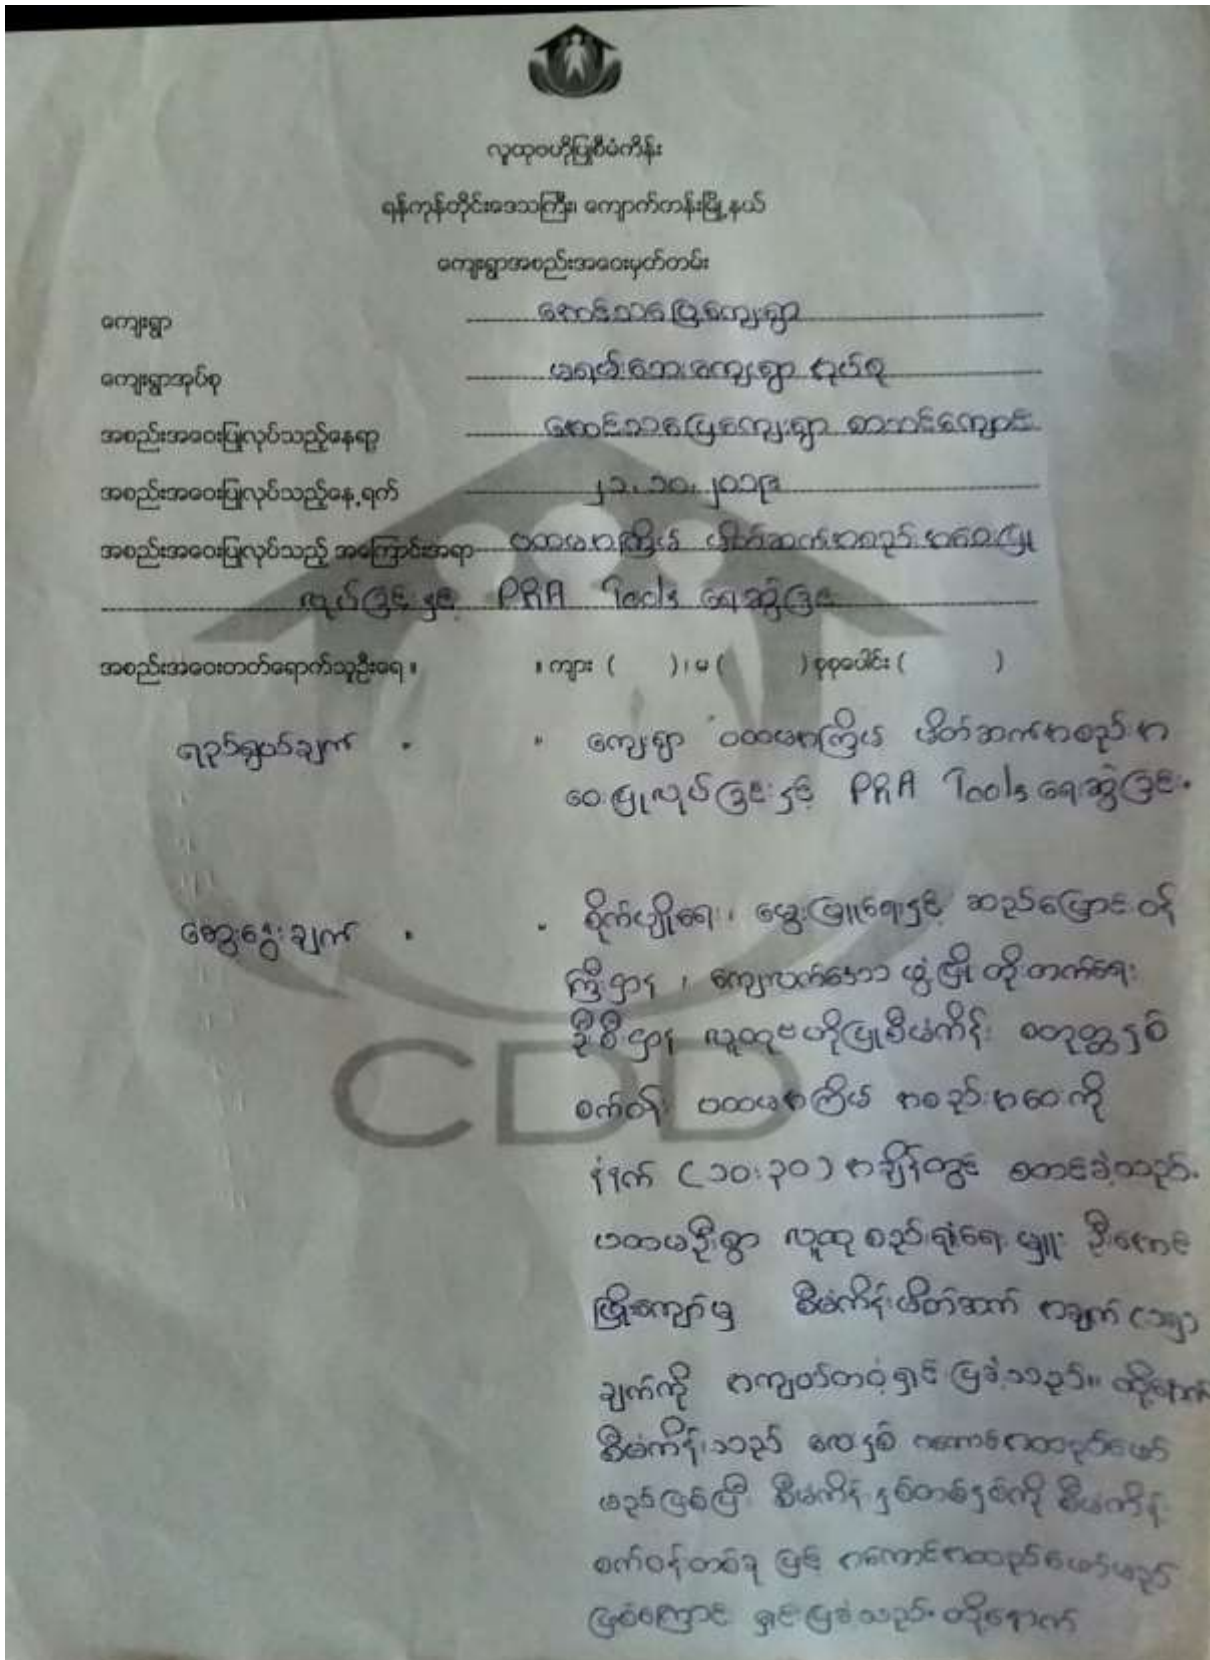 လူထုဗဟိုပြုစီမံကိန်း
ရန်ကုန်တိုင်းဒေသကြီး၊ ကျောက်တန်းမြို့နယ်
ကျေးရွာအစည်းအဝေးမှတ်တမ်း
ကျေးရွာ အောင်သပြေကျေးရွာ
ကျေးရွာအုပ်စု ကျေးရွာ အုပ်စု
အစည်းအဝေးပြုလုပ်သည့်နေရာ အောင်သပြေကျေးရွာ စာသင်ကျောင်း
အစည်းအဝေးပြုလုပ်သည့်နေ့ရက် ၂၁.၁၀.၂၀၁၉
အစည်းအဝေးပြုလုပ်သည့် အကြောင်းအရာ ပထမအကြိမ် မိတ်ဆက်အစည်းအဝေးပြု
လုပ်ခြင်းနှင့် PRA Tools ရေးဆွဲခြင်း
အစည်းအဝေးတတ်ရောက်သူဦးရေ။ ။ ကျား ( )၊ မ ( ) စုစုပေါင်း ( )
ရည်ရွယ်ချက် ။ ။ ကျေးရွာ ပထမအကြိမ် မိတ်ဆက်အစည်းအ
ဝေးပြုလုပ်ခြင်းနှင့် PRA Tools ရေးဆွဲခြင်း။
ဆွေးနွေးချက် ။ ။ စိုက်ပျိုးရေး၊ မွေးမြူရေးနှင့် ဆည်မြောင်းဝန်
ကြီးဌာန ၊ ကျေးလက်ဒေသ ဖွံ့ဖြိုးတိုးတက်ရေး
ဦးစီးဌာန လူထုဗဟိုပြုစီမံကိန်း စတုတ္ထနှစ်
စက်ဝန်း ပထမအကြိမ် အစည်းအဝေးကို
နံနက် (၁၀:၃၀) အချိန်တွင် စတင်ခဲ့သည်။
ပထမဦးစွာ လူထုစည်းရုံးရေးမှူး ဦးအောင်
ဖြိုးကျော်မှ စီမံကိန်းမိတ်ဆက် အချက်
ချက်ကို အကျယ်တဝံ့ရှင်းပြခဲ့သည်။ ထို့နောက်
စီမံကိန်းသည် လေးနှစ် အကောင်အထည်ဖော်
မည်ဖြစ်ပြီး စီမံကိန်းနှစ်တစ်နှစ်ကို စီမံကိန်း
စက်ဝန်းတစ်ခု ဖြင့် အကောင်အထည်ဖော်မည်
ဖြစ်ကြောင်း ရှင်းပြခဲ့သည်။ ထို့နောက်
CDD